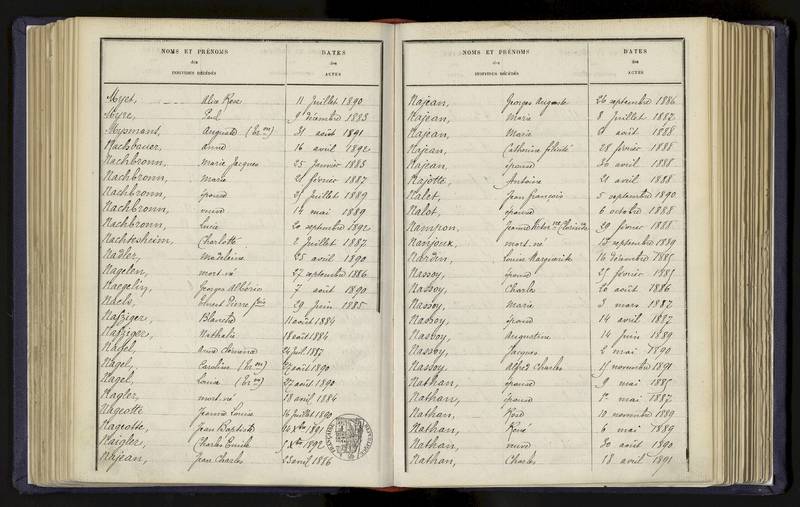 NOMS ET PRÉNOMS
des
INDIVIDUS DÉCÉDÉS
DATES
des
ACTES
Myet, Alice Rose 11 Juillet 1890
Myre, Paul 9 Décembre 1883
Mysmans, Auguste 31 août 1891
Nachbauer, Anna 16 avril 1892
Nachbronn, Marie Jacques 25 Janvier 1883
Nachbronn, Marie 21 février 1887
Nachbronn, épouse 25 Juillet 1889
Nachbronn, veuve 14 mai 1889
Nachbronn, Lucie 20 septembre 1892
Nachtesheim, Charlotte 2 Juillet 1887
Nadler, Madeleine 25 avril 1890
Nagelen, mort-né 27 septembre 1886
Naegelin, Georges Albéric 7 août 1890
Naels, Ernest Pierre 29 Juin 1885
Nafziger, Blanche 11 août 1884
Nafziger, Nathalie 18 août 1884
Nagel, 26 Juil. 1887
Nagel, Caroline 27 août 1890
Nagel, Louise 27 août 1890
Nagler, mort-né 18 avril 1884
Nageotte Jeanne Louise 16 Juillet 1890
Nageotte, Jean Baptiste 14 Xbre 1891
Naigler, Charles Emile 5 Xbre 1892
Najean, Jean Charles 23 avril 1886
NOMS ET PRÉNOMS
des
INDIVIDUS DÉCÉDÉS
DATES
des
ACTES
Najean, Georges Auguste 26 septembre 1886
Najean, Marie 8 Juillet 1887
Najean, Marie août 1888
Najean, Catherine félicité 28 février 1888
Najean, épouse 30 avril 1888
Najotte, Antoine 21 avril 1888
Nalet, Jean françois 5 septembre 1890
Nalot, épouse 6 octobre 1888
Nampon, 29 février 1888
Nanjoux, mort-né 15 septembre 1889
Nardin, Louise Marguerite 16 Décembre 1885
Nassoy, épouse 25 février 1885
Nassoy, Charles 20 août 1886
Nassoy, Marie 3 mars 1887
Nassoy, épouse 14 avril 1887
Nassoy, Augustine 14 Juin 1889
Nassoy, Jacques 2 mai 1890
Nassoy, Alfred Charles 15 novembre 1891
Nathan, épouse 9 mai 1885
Nathan, épouse mai 1887
Nathan, Rose 10 novembre 1889
Nathan, René 6 mai 1889
Nathan, veuve 30 août 1890
Nathan, Charles 18 avril 1891